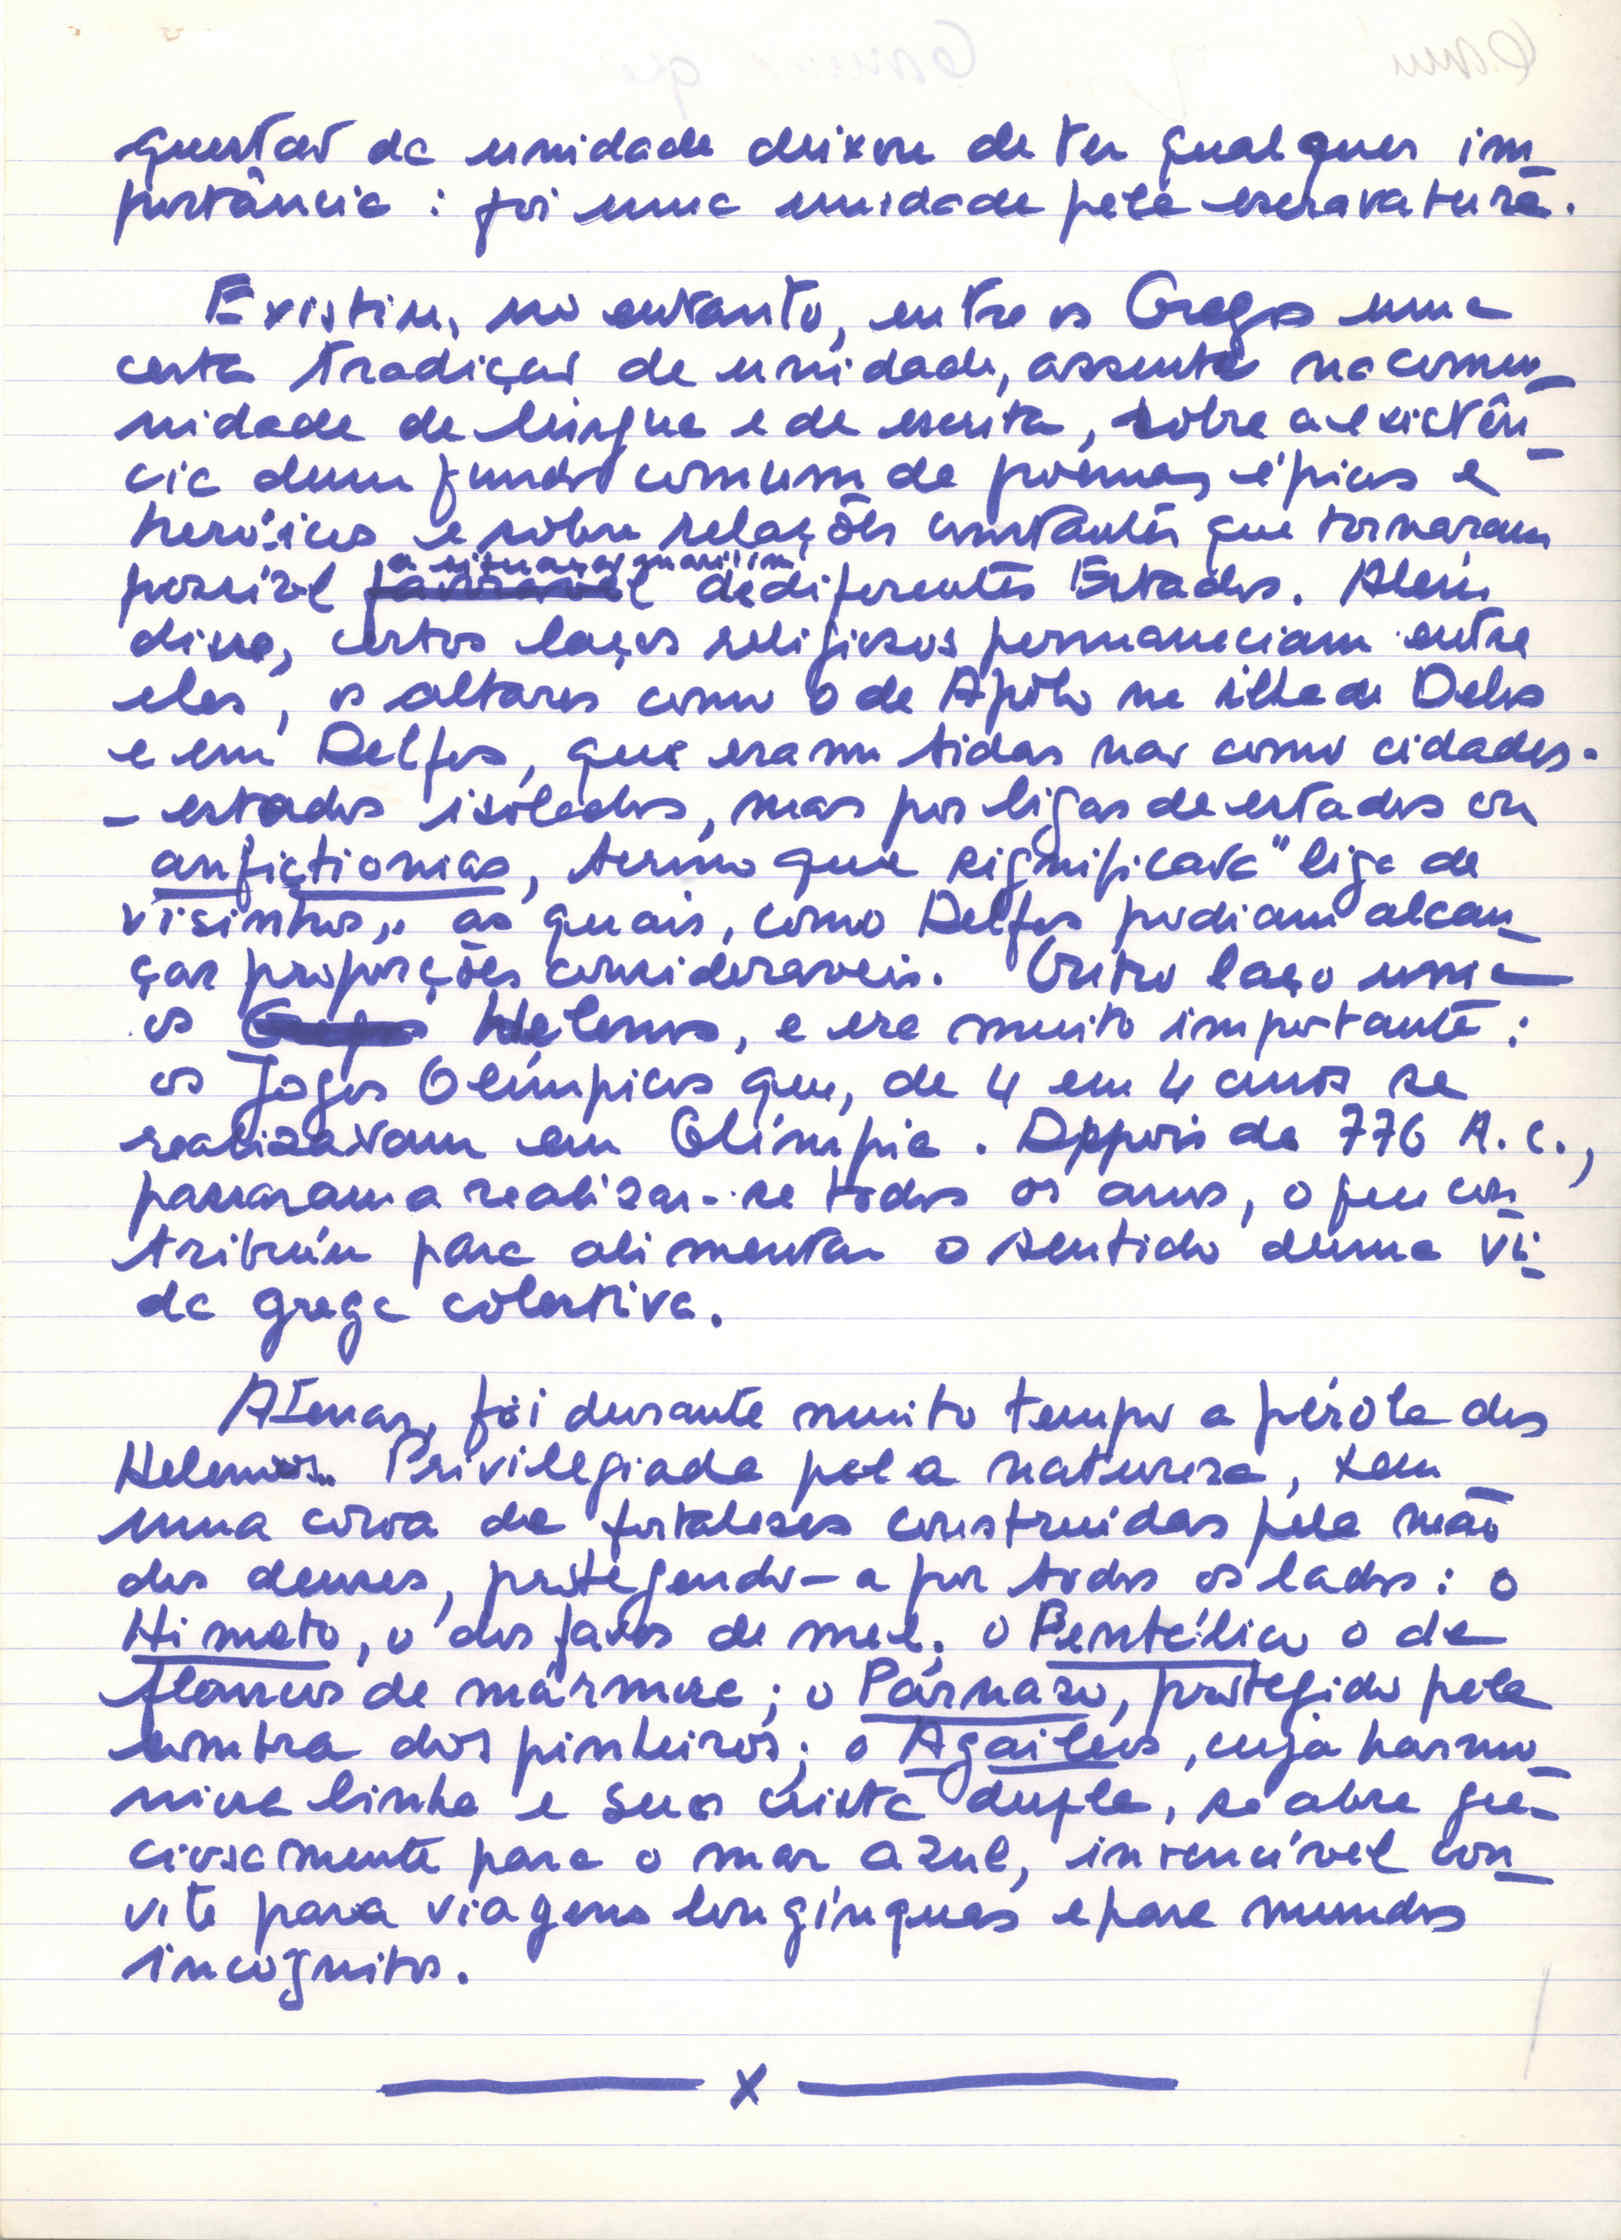 questão da unidade deixou de ter qualquer im-
portância: foi uma unidade pela escravatura.
Existiu, no entanto, entre os Gregos uma
certa tradição de unidade, assente na comu-
nidade de língua e de escrita, sobre a existên-
cia dum fundo comum de poemas épicos e
heróicos e sobre relações constantes que tornaram
a situação marítima
possível de diferentes Estados. Além
disso, certos laços religiosos permaneciam entre
eles, os altares como o de Apolo na ilha de Delos
e em Delfos, que eram tidas não como cidades-
-estados isolados, mas por ligas de estados ou
anfictionias, termo que significava "liga de
visinhos,, as quais, como Delfos podiam alcan-
çar proporções consideraveis. Outro laço unia
os Helenos, e era muito importante:
os Jogos Olímpicos que, de 4 em 4 anos se
realizavam em Olímpia. Deppois de 776 A.C.,
passaram a realizar-se todos os anos, o que con-
tribuíu para alimentar o sentido duma vi-
da grega colectiva.
Atenas, foi durante muito tempo a pérola dos
Helenos.. Privilegiada pela natureza, tem
uma coroa de fortalezas construidas pela mão
dos deuses, protegendo-a por todos os lados: o
Himeto, o dos favos de mel, o Pentélico o de
flancos de mármore; o Párnaso, protegido pela
sombra dos pinheiros; o Agaileos, cuja harmo-
niosa linha e sua crista dupla, se abre gra-
ciosamente para o mar azul, invencível con-
vite para viagens longínquas e para mundos
incognitos.
x